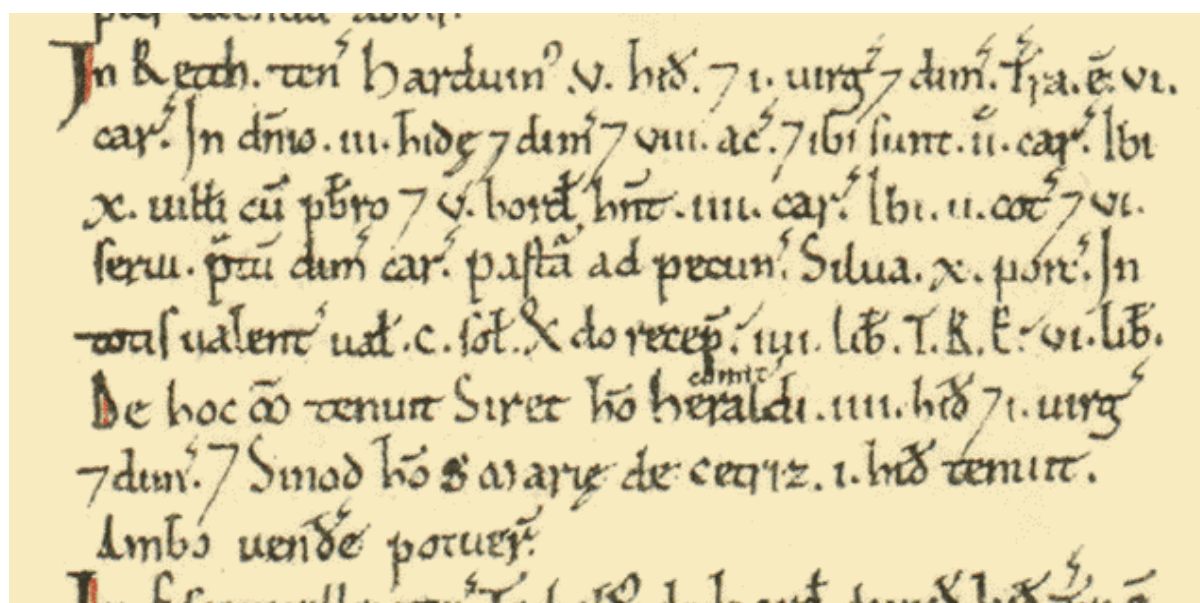 In Reech. ten̄ Harduin⁹ .v. hiđ. ⁊ i. uirg̃ ⁊ dim̃. T̃ra. ē. vi.
car̃. In dn̄io .iii. hidę ⁊ dim̃ ⁊ viii. ac̃. ⁊ ibi sunt .ii. car̃. Ibi
x. uilłi cū pb̄ro ⁊ v. borđ hn̄t .iiii. car̃. Ibi .ii. cot̃ ⁊ vi.
serui. p̃tū dim̃ car̃. pastā ad pecun̄. Silua .x. porc̃. In
totis ualent̃ uał .c. soł. & do recep̃. iiii. lib̃. T.R.E. vi. lib̃.
De hoc m̄ tenuit Siret hō heraldi comit̃ .iiii. hiđ ⁊ i. uirg̃
⁊ dim̃. ⁊ Sinod hō S Marię de cetriz .i. hiđ tenuit.
Ambo uendẽ potuer̃.